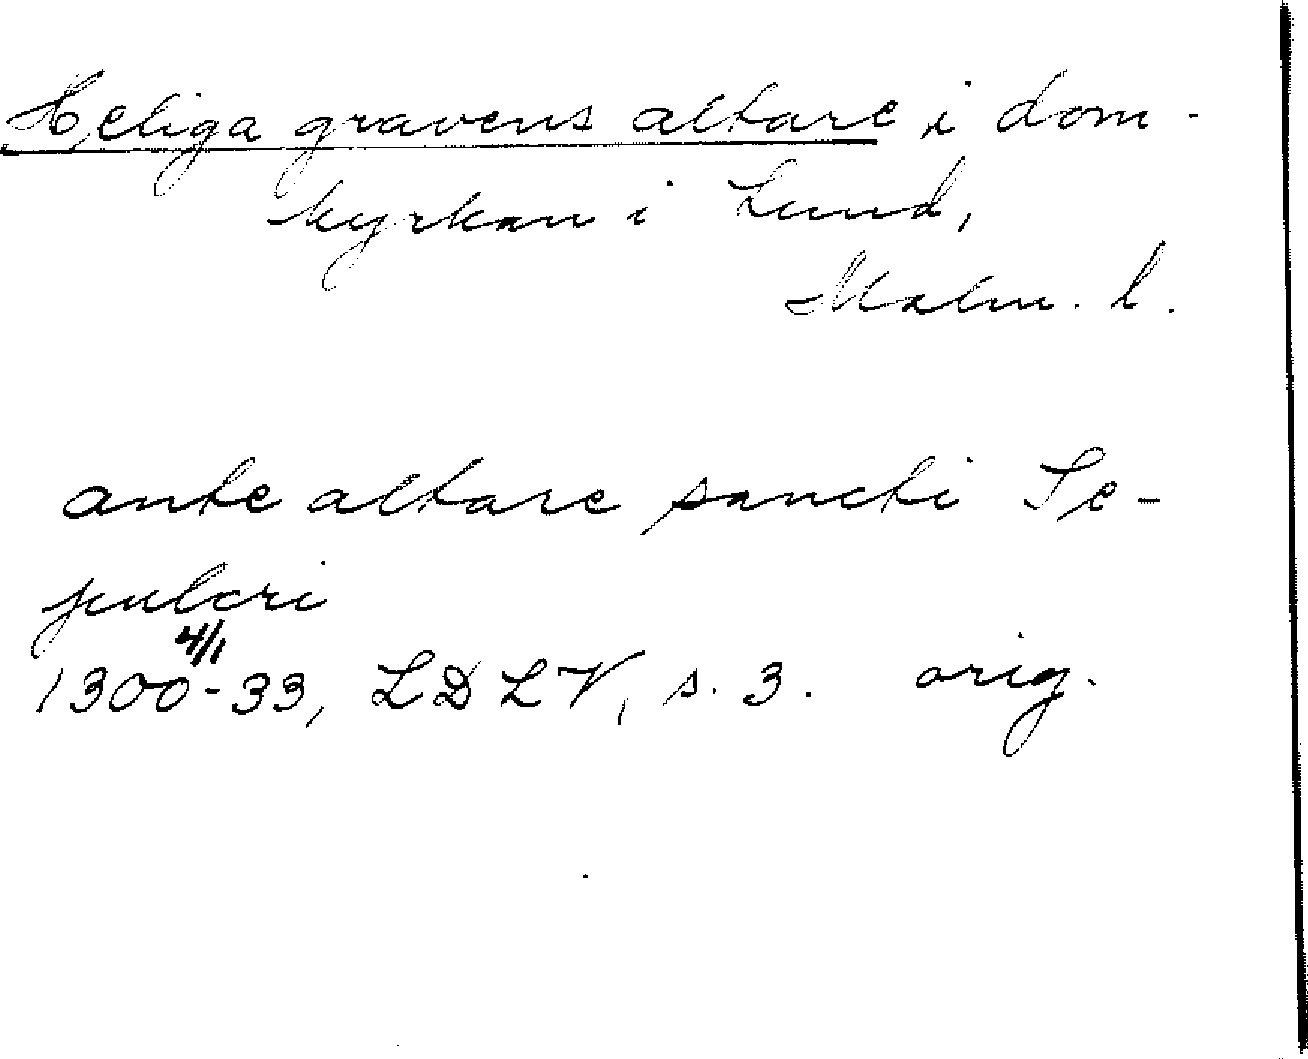 Heliga gravens altare i dom-
kyrkan i Lund,
Malm. l.
ante altare sancti Se-
pulcri
4/1
1300-33, LDLV, s. 3. orig.